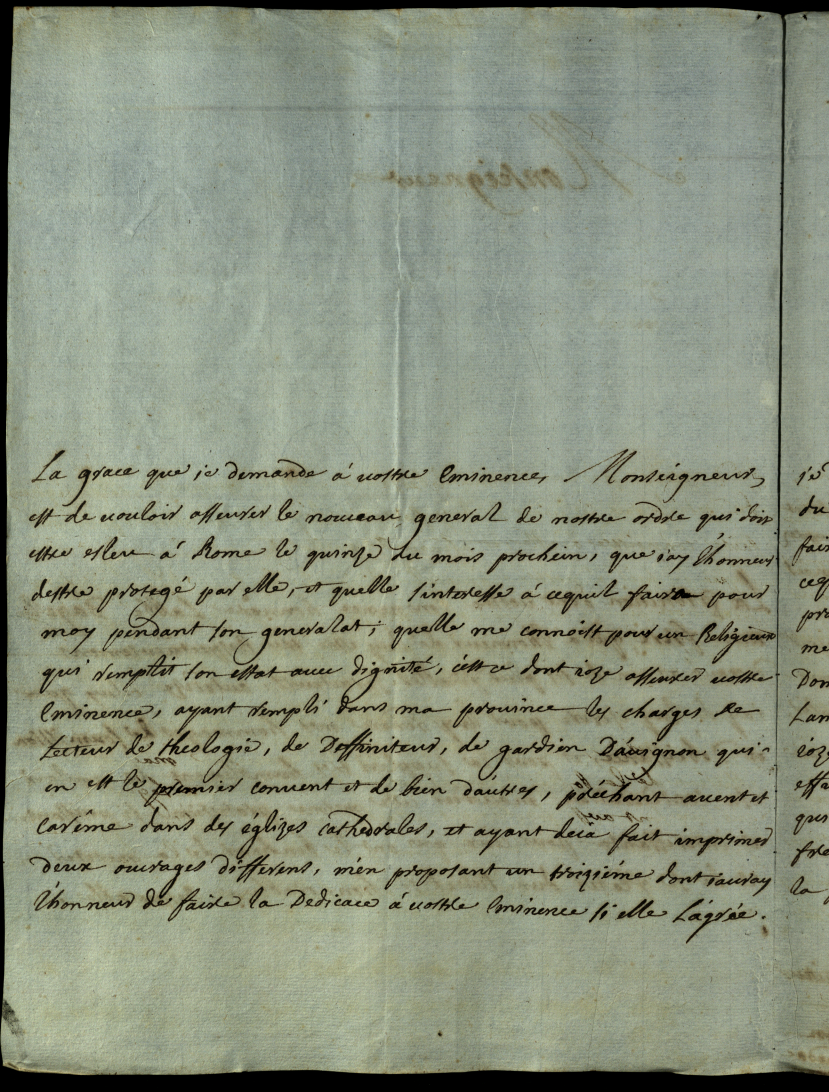 La grace que je demande á vostre Eminence, Monseigneur,
est de vouloir asseurer le nouveau general de nostre ordre qui doit
estre esleu á Rome le quinze du mois prochein, que j'ay l'honneur
destre protegé par elle, et quelle s'interesse á cequil faira pour
moy pendant son generalat; quelle me connoist pour un Religieux
qui remplit son estat avec dignité, c'est ce dont j'oze asseurer vostre
Eminence, ayant rempli dans ma province les charges de
Lecteur de théologie, de Deffiniteur, de gardien D'avignon qui
en est le premier convent et de bien d'autres, prêchant avent et
carême dans des églizes cathedrales, et ayant deja fait imprimer
deux ouvrages différens, m'en proposant un troiziéme dont j'auray
l'honneur de faire la Dedicace á vostre Eminence si elle L'agrée.
je
du
fair
ceq
pro
me
Don
Lan
j'oze
effa
qui
fre
la